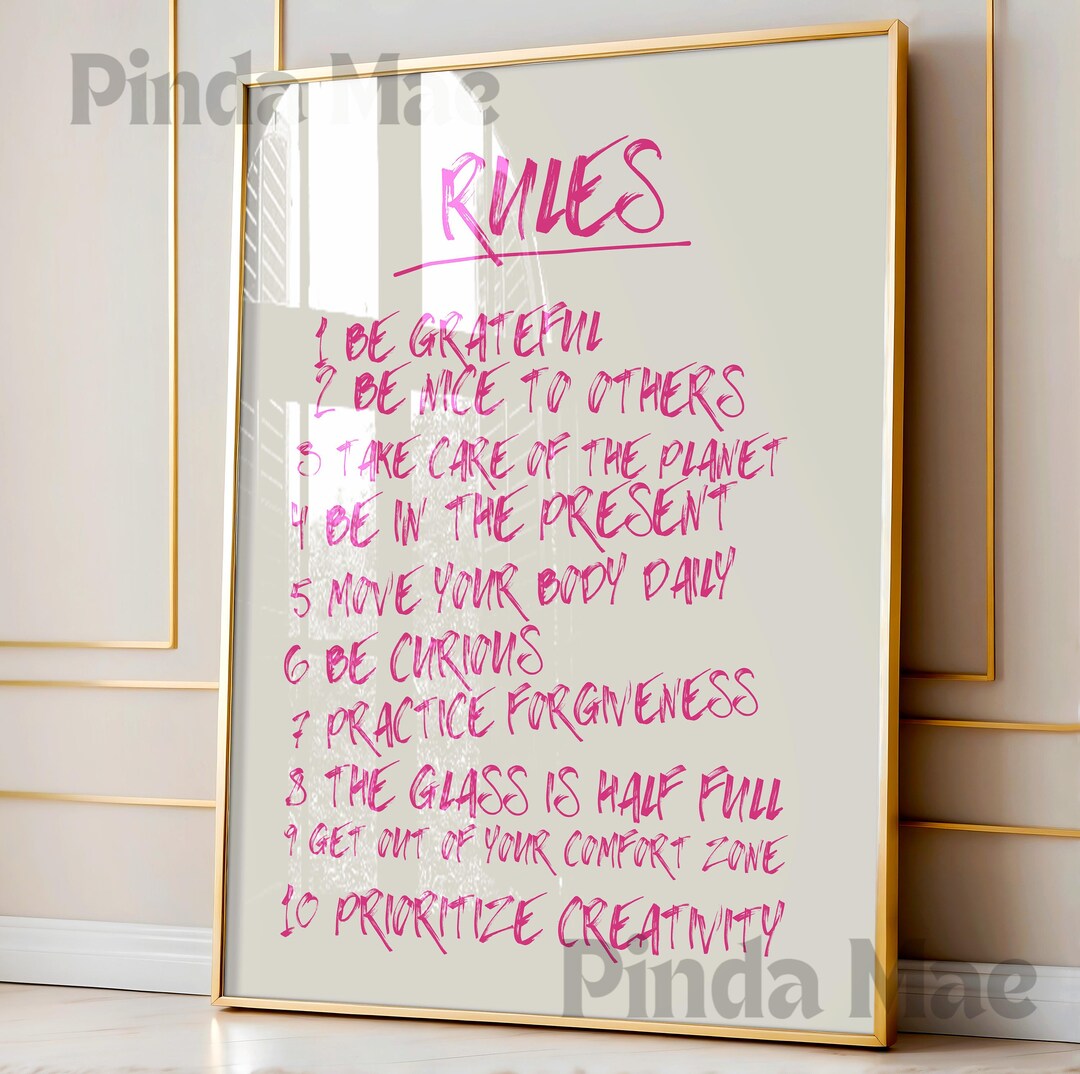 Pinda Mae
RULES
1 BE GRATEFUL
2 BE NICE TO OTHERS
3 TAKE CARE OF THE PLANET
4 BE IN THE PRESENT
5 MOVE YOUR BODY DAILY
6 BE CURIOUS
7 PRACTICE FORGIVENESS
8 THE GLASS IS HALF FULL
9 GET OUT OF YOUR COMFORT ZONE
10 PRIORITIZE CREATIVITY
Pinda Mae